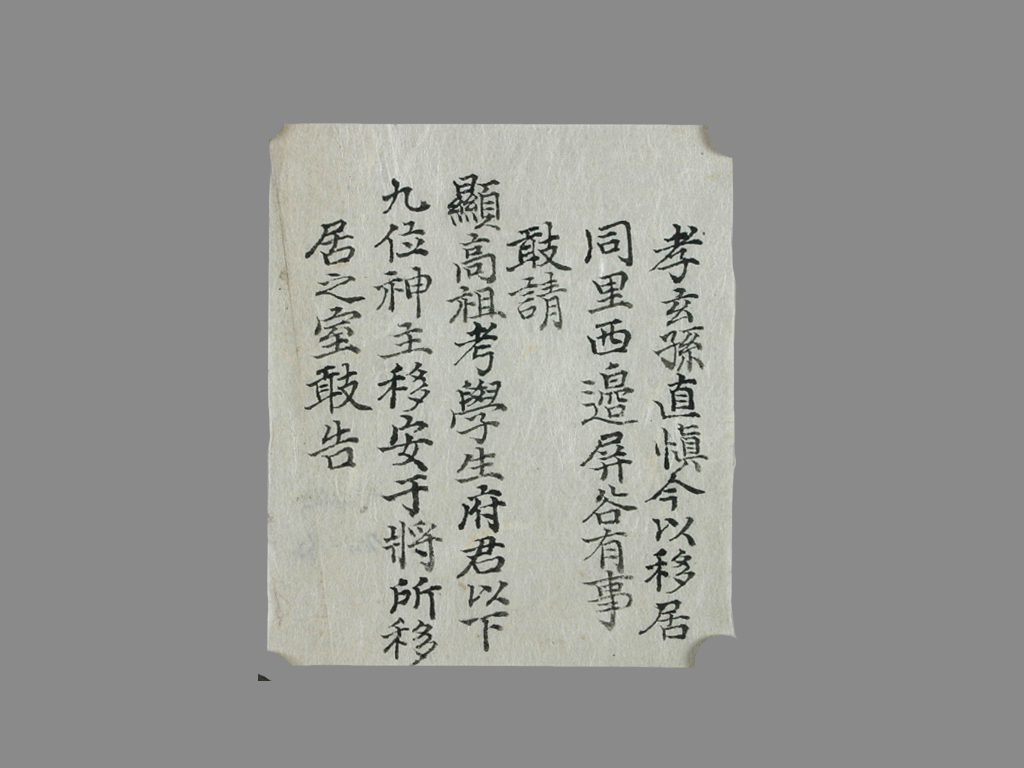 孝玄孫直愼今以移居
同里西邉屛谷有事
敢請
顯高祖考學生府君以下
九位神主移安于將所移
居之室敢告